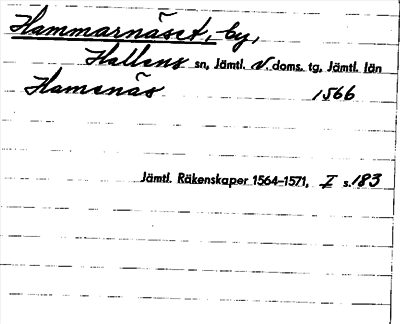 Hammarnäset, by,
Hallens sn, Jämtl. v. doms. tg, Jämtl. län
Hamsnäs 1566
Jämtl. Räkenskaper 1564–1571, I s. 183